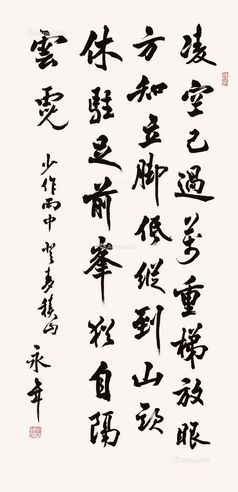 凌空已過萬重梯放眼
方知立脚低縱到山頭
休駐足前峯猶自隔
雲霓
少作雨中登青猿山
永年